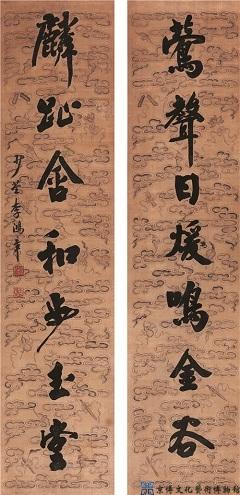 鶯聲日煖鳴金谷
麟趾含和步玉堂
少荃李鴻章
京博文化藝術博物館